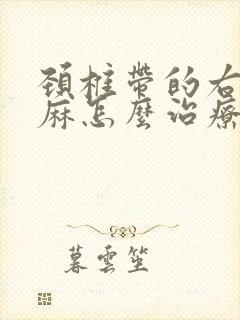 頚柱帶的右
麻怎麼治療
暮雲笙